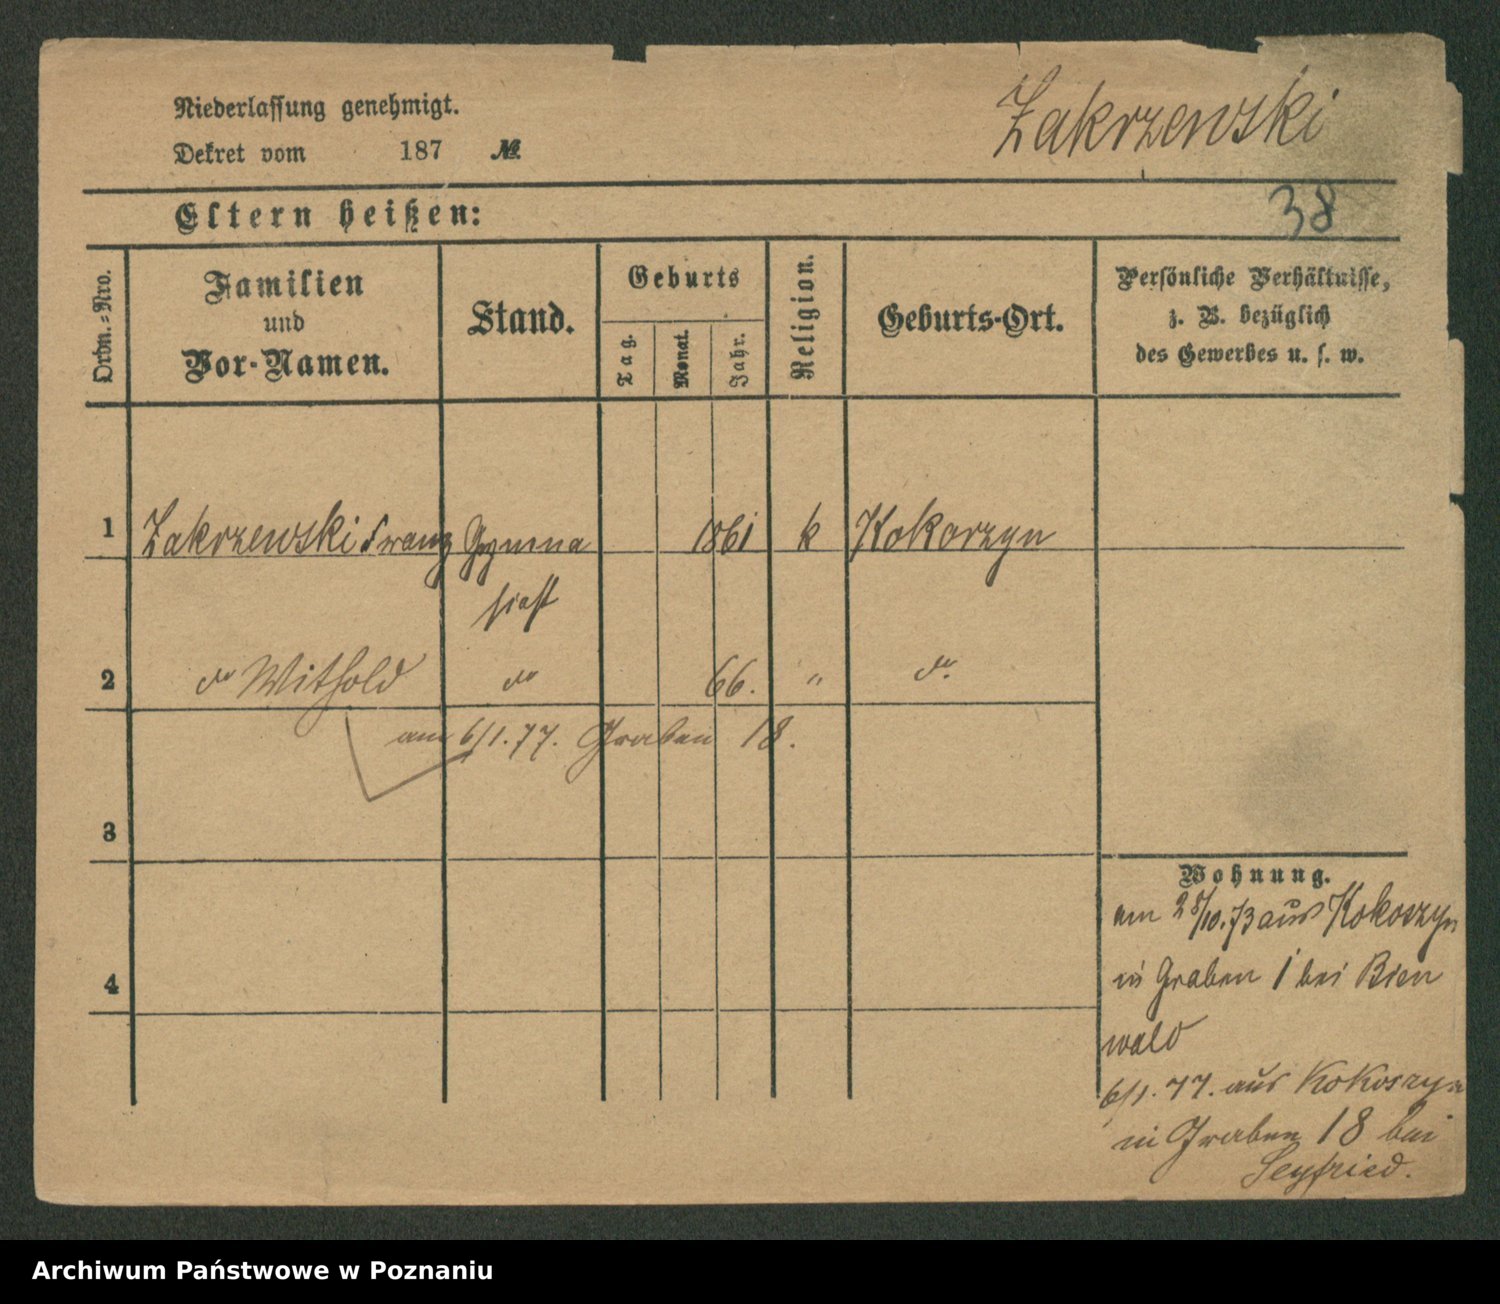 Niederlassung genehmigt.
Zakrzewski
Dekret vom 187 №
Eltern heißen:
38
Ordn.-Nro.
Familien
und
Vor-Namen.
Stand.
Geburts
Tag.
Monat.
Jahr.
Religion.
Geburts-Ort.
Persönliche Verhältnisse,
z. B. bezüglich
des Gewerbes u. s. w.
1 Zakrzewski Franz Gymna 1861 k Kokorzyn
siast
2 do Withold do 66. " do.
am 6/1.77. Graben 18.
3
Wohnung.
am 28/10.73 aus Kokoszyn
4
in Graben 1 bei Bien
wald
6/1.77. aus Kokoszyn
in Graben 18 bei
Seyfried.
Archiwum Państwowe w Poznaniu